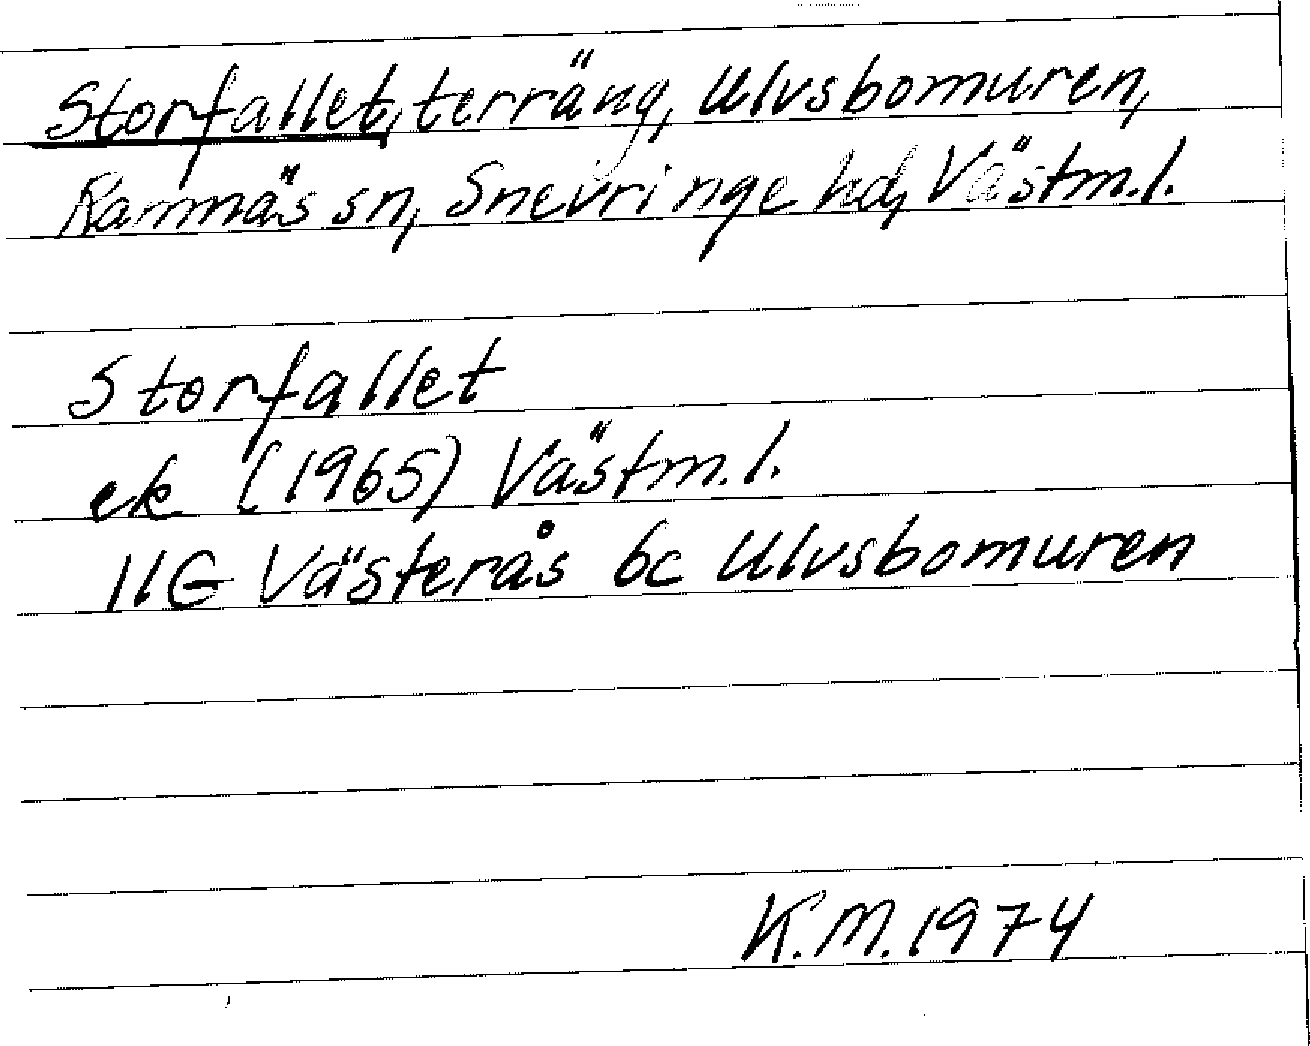 Storfallet, terräng, Ulvsbomuren,
Ramnäs sn, Snevringe hd, Västm.l.
Storfallet
ek (1965) Västm.l.
11G Västerås 6c Ulvsbomuren
K.M. 1974